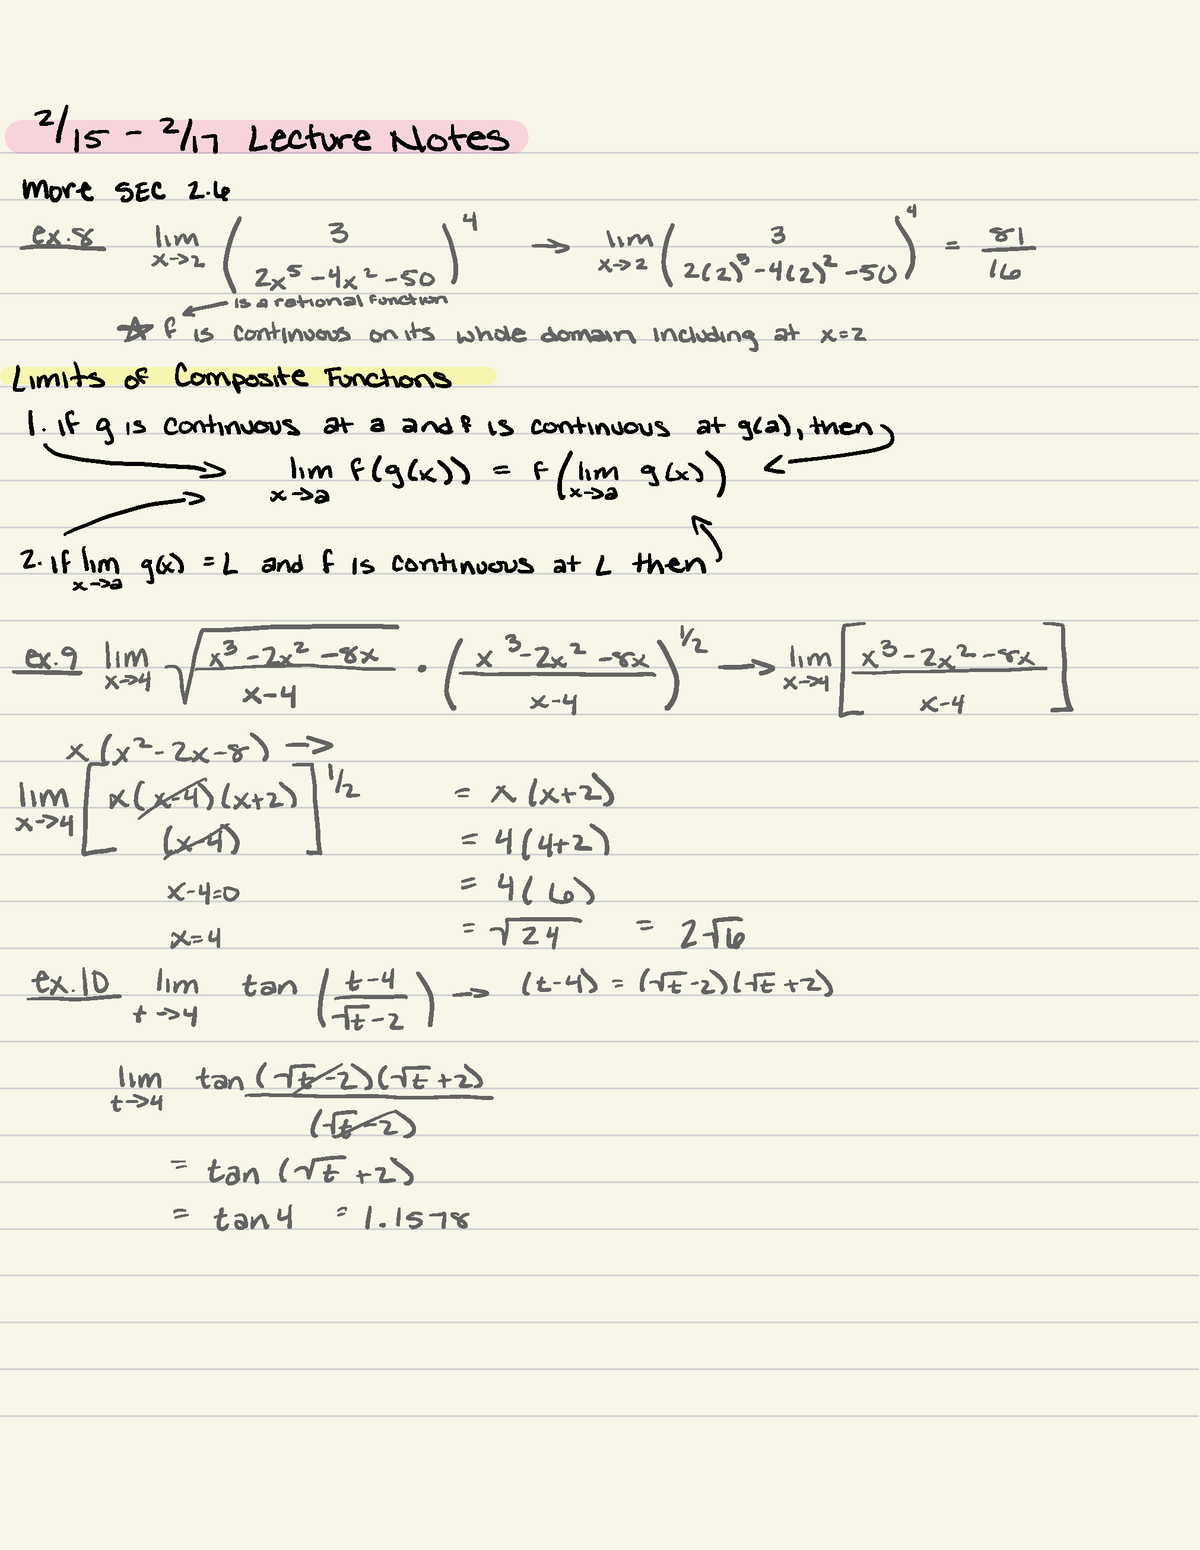 2/15 - 2/17 Lecture Notes
More SEC 2.6
ex.8 lim x→2 (3 / 2x⁵ - 4x² - 50)⁴ → lim x→2 (3 / 2(2)⁵ - 4(2)² - 50)⁴ = 81/16
is a rational function
☆ f is continuous on its whole domain including at x=2
Limits of Composite Functions
1. If g is continuous at a and f is continuous at g(a), then
lim x→a f(g(x)) = f(lim x→a g(x))
2. If lim x→a g(x) = L and f is continuous at L then
ex.9 lim x→4 √(x³ - 2x² - 8x / x-4) · (x³ - 2x² - 8x / x-4)^1/2 → lim x→4 [x³ - 2x² - 8x / x-4]
x(x² - 2x - 8) →
lim x→4 [x(x-4)(x+2) / (x-4)]^1/2 = x(x+2)
= 4(4+2)
x-4=0 = 4(6)
x=4 = √24 = 2√6
ex.10 lim t→4 tan (t-4 / √t-2) → (t-4) = (√t-2)(√t+2)
lim t→4 tan (√t-2)(√t+2) / (√t-2)
= tan (√t+2)
= tan 4 = 1.1578